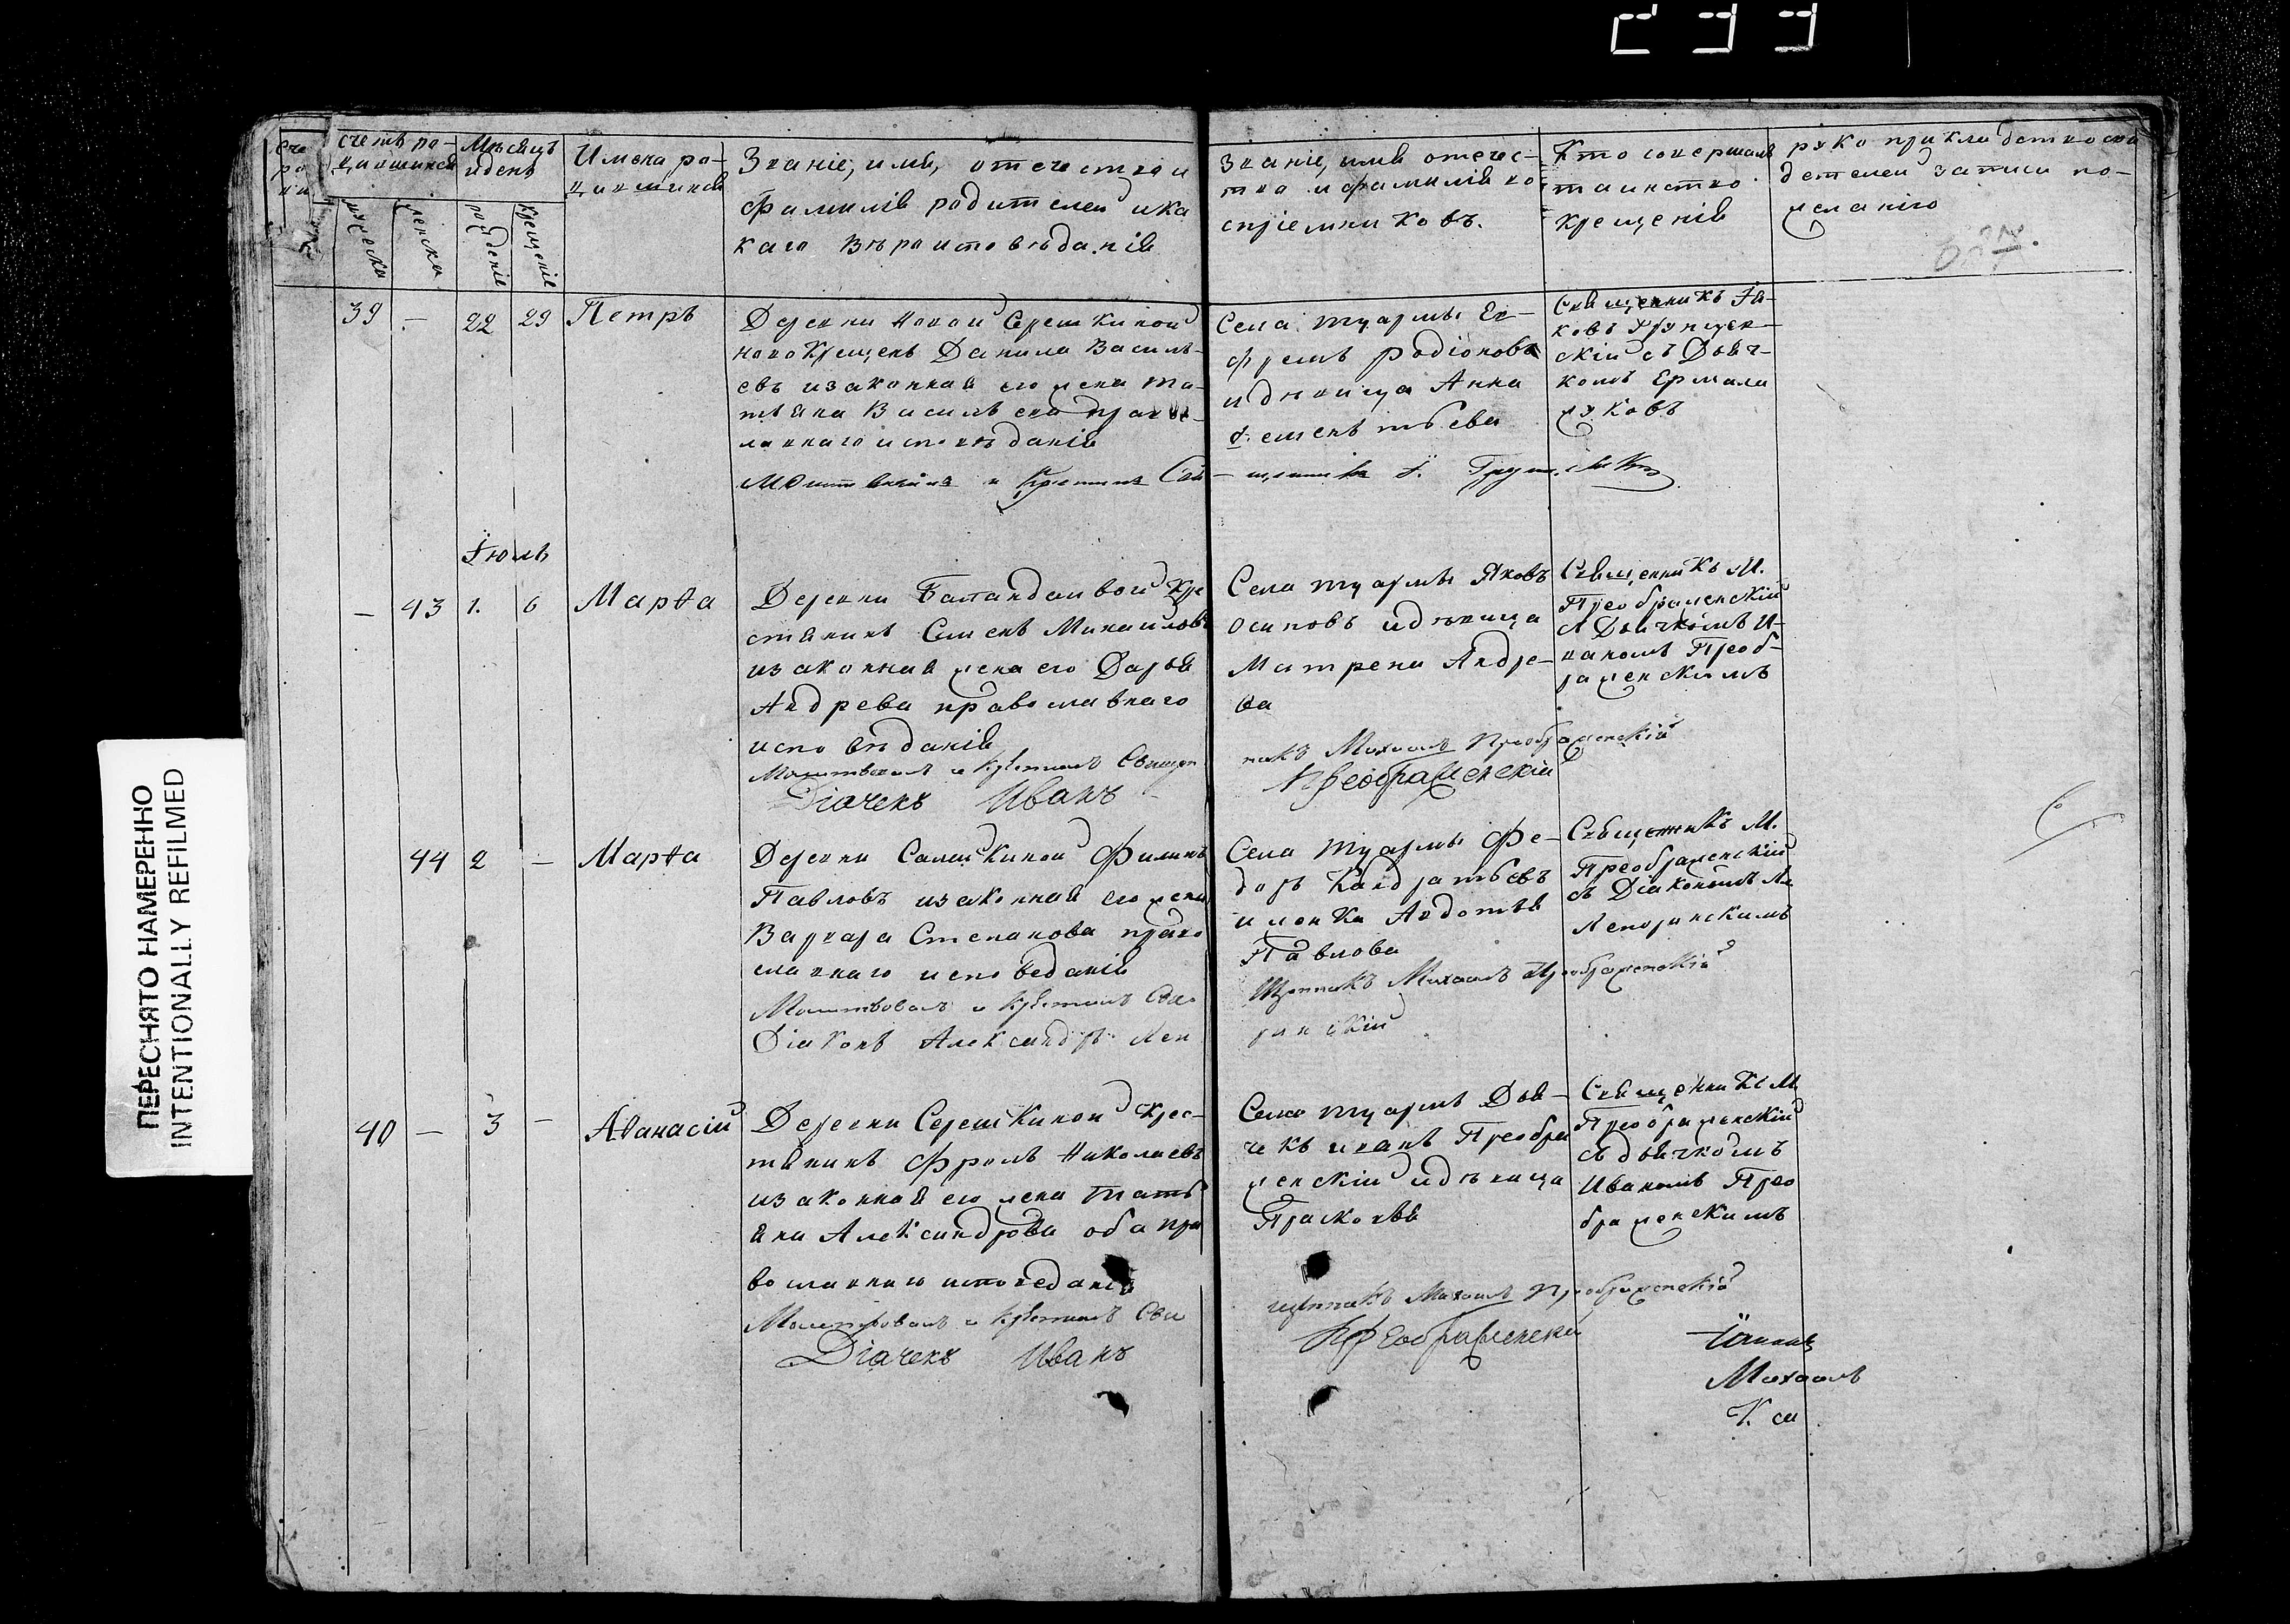 счетъ ро-
дившихся
Мѣсяцъ
и день
Имена ро-
дившихся
Званіе, имя, отечество и
фамилія родителей и ка
каго вѣроисповѣданія
Званіе, имя отечес-
тво и фамилія во
спріемниковъ.
Кто совершалъ
таинство
крещенія
руко прикладство сви
детелей записи по-
желанію
мужеска
женска
рожденія
крещенія
39 - 22 29 Петръ
Деревни Новой Серешкиной
новокрещенъ Данила Василь-
евъ изаконная его жена Та-
тьяна Васильева право-
лавнаго исповѣданія
Молитвовалъ и крестилъ Свя-
Села туармы Ев-
фремъ родіоновъ
и дѣвица Анна
терентьева
щенникъ
Священникъ Іа-
ковъ
скій съ Дьяч-
комъ Ермола
Іюль
- 43 1. 6 Марѳа
Деревни Баландаивой кре
стьянинъ Сименъ Михаиловъ
изаконная жена его Дарья
Андрева православнаго
исповѣданія
Молитвовалъ и крестилъ Священ
Діачекъ Иванъ
Села туармы Яковъ
Осиповъ идѣвица
Матрена Андре-
ва
никъ Михаилъ Преображенскій
Преображенскій
Священникъ М.
Преображенскій
съ Дьячкомъ И-
ваномъ Преоб-
раженскимъ
44 2 - Марѳа
Деревни Салешкиной Филипъ
Павловъ изаконная его жена
Варвара Степанова право
славнаго исповеданія
Молитвовалъ и крестилъ Свя
Діаконъ Александръ Леп
Села туармы Фе-
доръ Кандратьевъ
и жонка Авдотья
Павлова
щенникъ Михаилъ Преображенскій
ринскій
Священникъ М.
Преображенскій
съ Діакономъ Ал
Лепоринскимъ
40 - 3 - Аѳанасій
Деревни Серешкиной крес-
тьянинъ Фролъ Николаевъ
изаконная его жена Тать
яна Александрова оба пра
вославнаго исповеданія
Молитвовалъ и крестилъ Свя
Діачекъ Иванъ
Села туармы Дья-
чекъ иванъ Преобра
женскій идѣвица
Прасковья
щенникъ Михаилъ Преображенскій
Преображенскій
Священникъ М
Преображенскій
съ дьячкомъ
Иваномъ Прео
браженскимъ
Михаилъ
ПЕРЕСНЯТО НАМЕРЕННО
INTENTIONALLY REFILMED